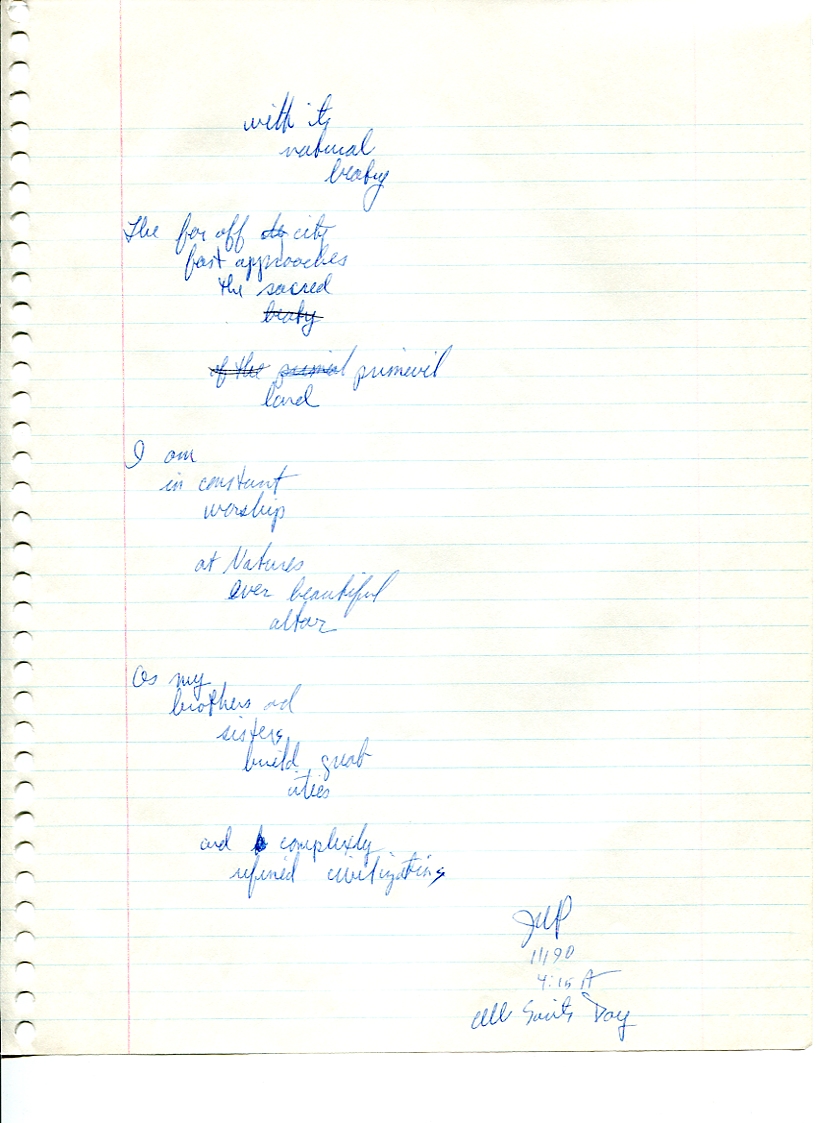 with its
natural
beaty
The far off city
fast approaches
the sacred
beaty
of the primevil
land
I am
in constant
worship
at Natures
ever beautiful
altar
As my
brothers ad
sisters
build great
cities
and complexly
refined civilizations
JWP
11190
4:15 A
All Saints Day